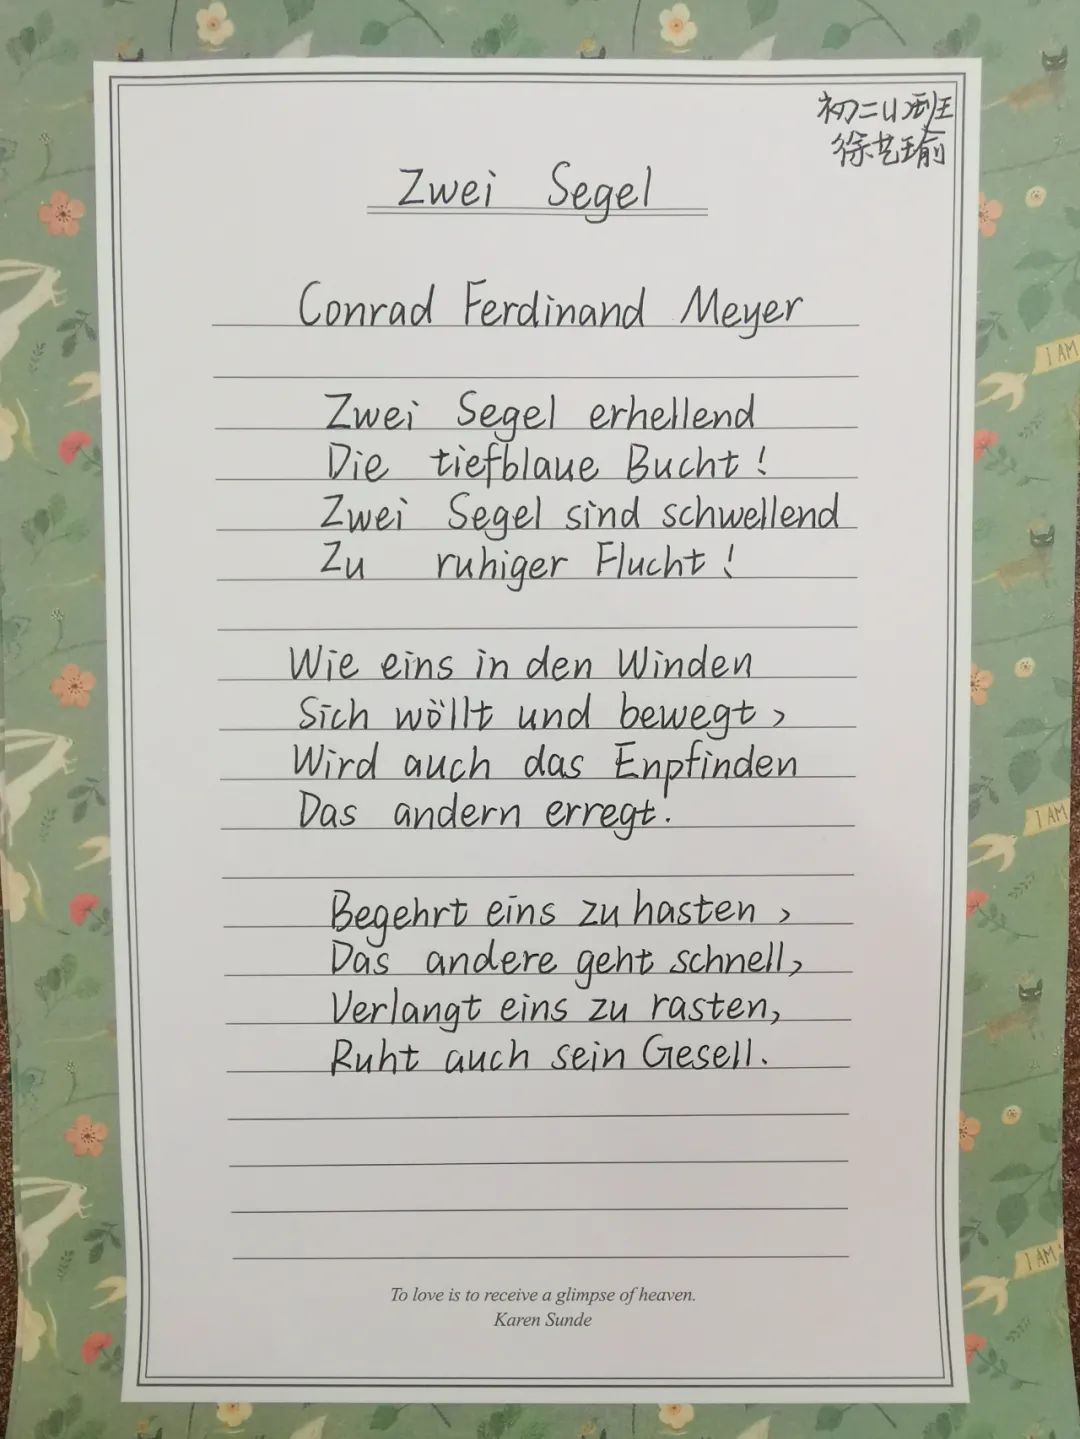 初二(1)班
徐艺瑜
Zwei Segel
Conrad Ferdinand Meyer
Zwei Segel erhellend
Die tiefblaue Bucht!
Zwei Segel sind schwellend
Zu ruhiger Flucht!
Wie eins in den Winden
Sich wöllt und bewegt,
Wird auch das Enpfinden
Das andern erregt.
Begehrt eins zu hasten,
Das andere geht schnell,
Verlangt eins zu rasten,
Ruht auch sein Gesell.
To love is to receive a glimpse of heaven.
Karen Sunde
I AM
I AM
I AM